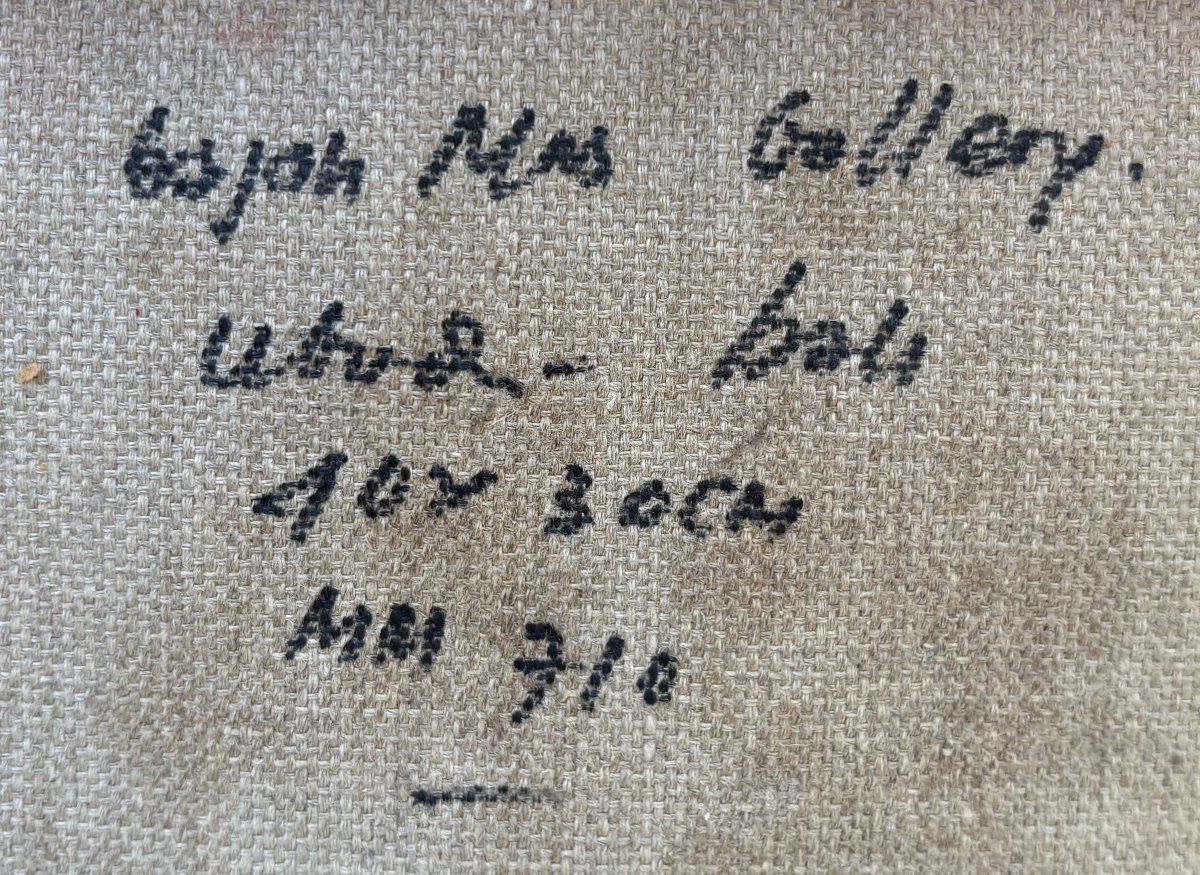 Gajah Mas Gallery.
Ubud - bali
40x30cm
MM 710